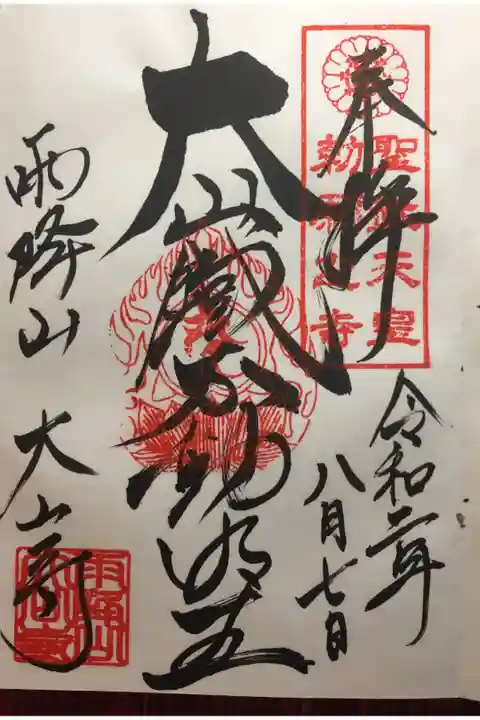 奉拝
聖武天皇
勅願之寺
令和二年
八月七日
大山鐵不動明王
雨降山 大山寺